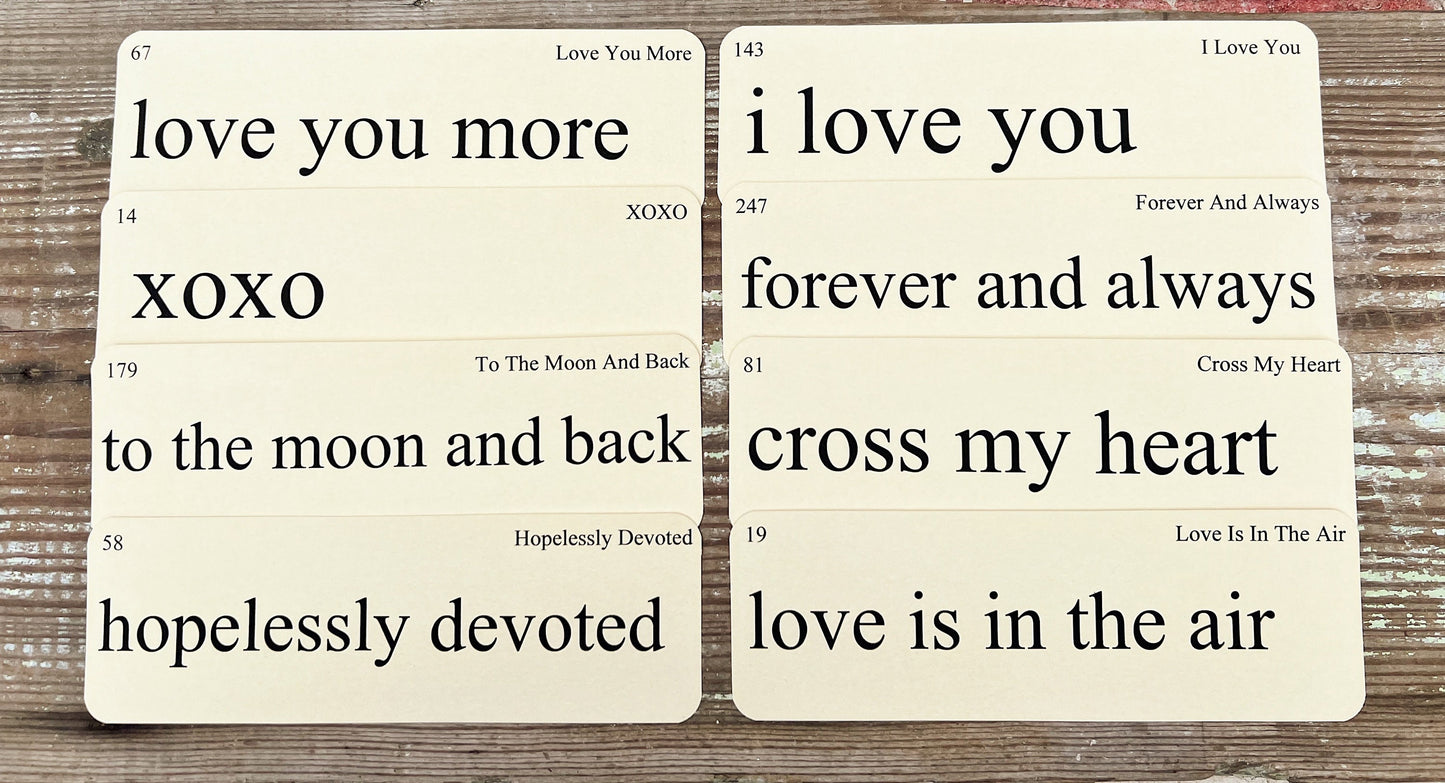 67
Love You More
love you more
14
XOXO
xoxo
179
To The Moon And Back
to the moon and back
58
Hopelessly Devoted
hopelessly devoted
143
I Love You
i love you
247
Forever And Always
forever and always
81
Cross My Heart
cross my heart
19
Love Is In The Air
love is in the air